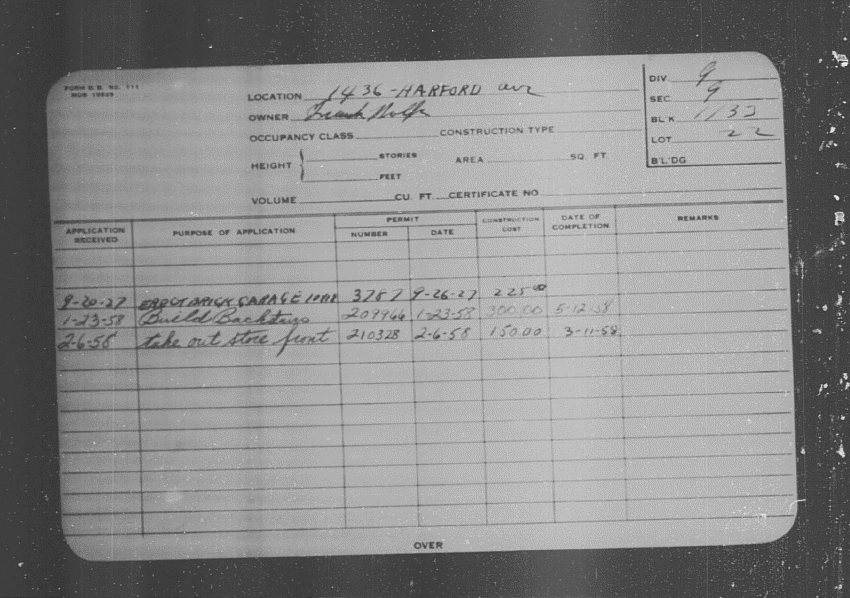 FORM B. B. NO. 111
LOCATION 1436 - HARFORD ave
OWNER Frank
OCCUPANCY CLASS CONSTRUCTION TYPE
HEIGHT STORIES AREA SQ. FT.
FEET
VOLUME CU. FT. CERTIFICATE NO
DIV. 9
SEC 9
BL'K 1132
LOT 22
B'L'DG
APPLICATION RECEIVED PURPOSE OF APPLICATION PERMIT NUMBER DATE CONSTRUCTION COST DATE OF COMPLETION REMARKS
9-20-27 ERECT BRICK GARAGE 3787 9-26-27 225 00
1-23-58 Build 209966 1-23-58 300.00 5-12-58
2-6-58 take out store front 210328 2-6-58 150.00 3-11-58
OVER